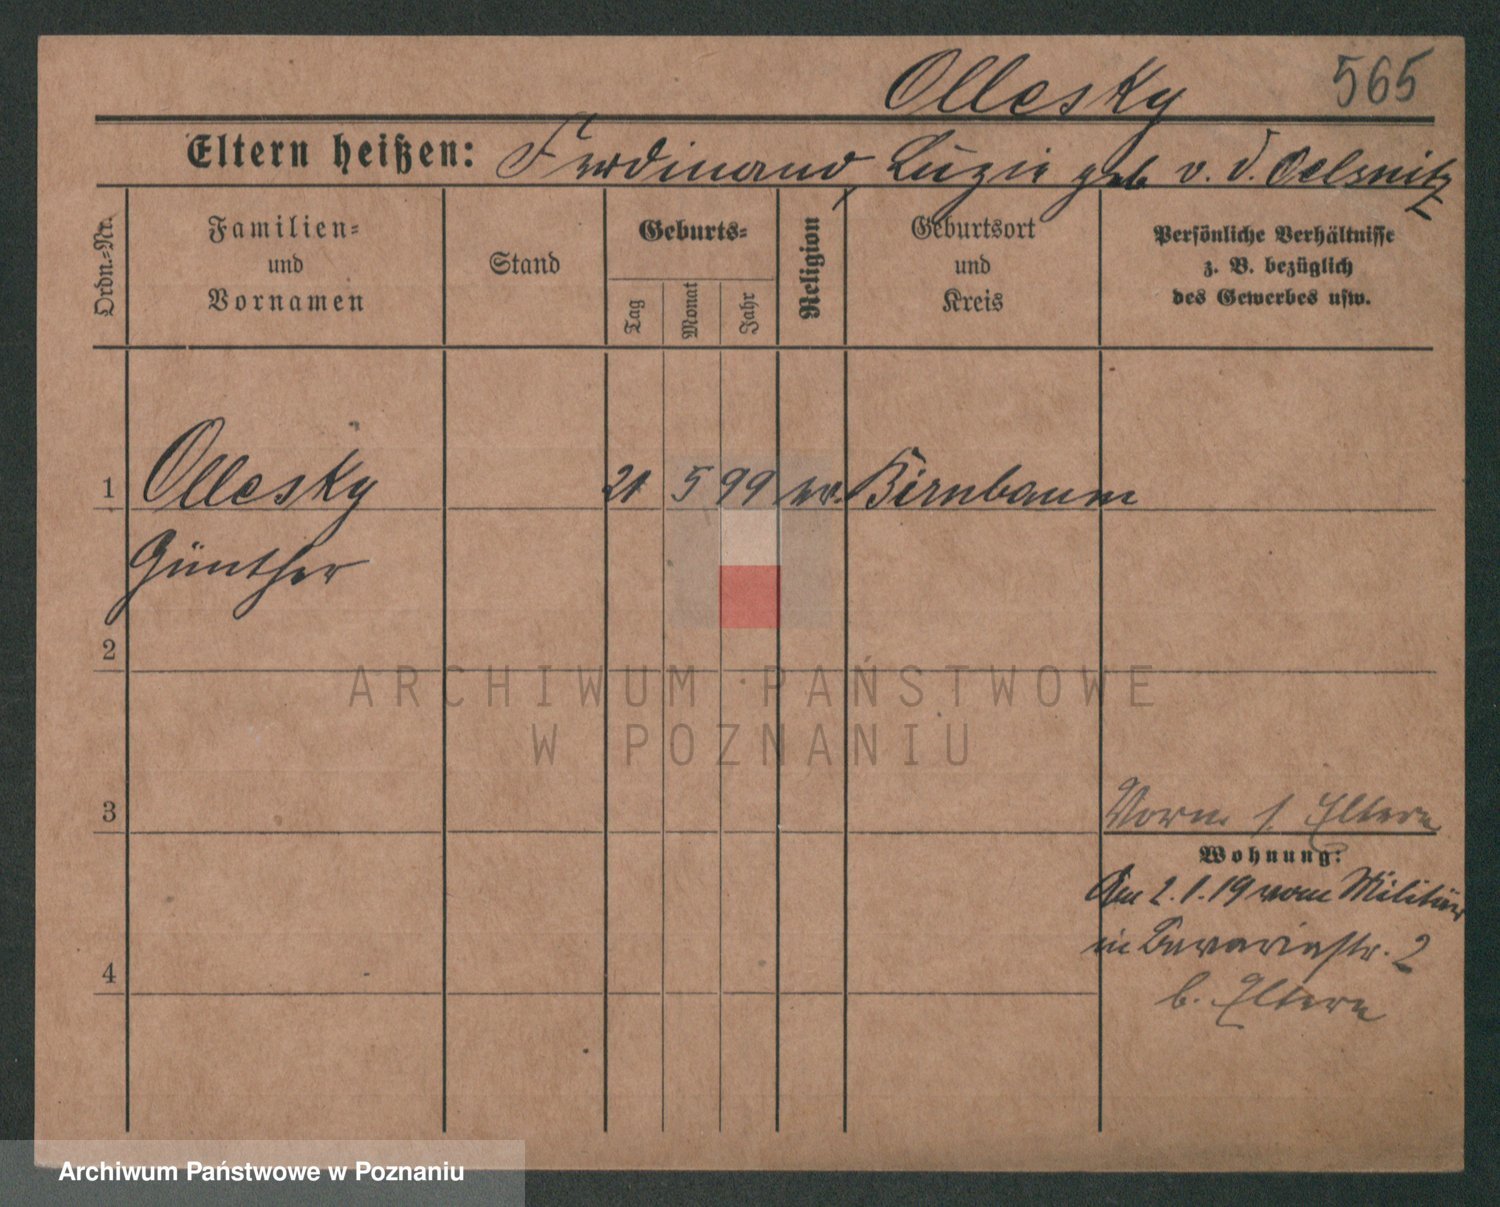 Ollesky 565
Eltern heißen: Ferdinand, Luzie geb v. d. Oelsnitz
Ordn.-Nr.
Familien-
und
Vornamen
Stand
Geburts-
Tag
Monat
Jahr
Religion
Geburtsort
und
Kreis
Persönliche Verhältnisse
z. B. bezüglich
des Gewerbes usw.
1 Ollesky 21 5 99 ev. Birnbaum
Günther
2
3
4
Vorm. s. Eltern
Wohnung:
Am 2.1.19 vom Militär
in Bavariastr. 2
b. Eltern
ARCHIWUM PAŃSTWOWE
W POZNANIU
Archiwum Państwowe w Poznaniu